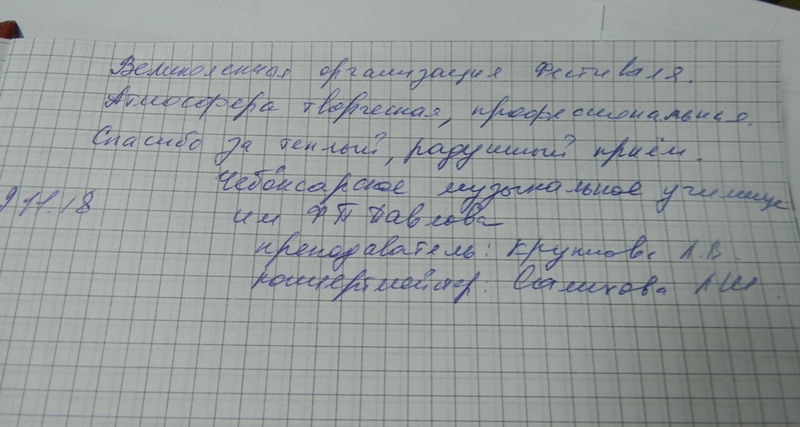 Великолепная организация Фестиваля.
Атмосфера творческая, профессиональная.
Спасибо за теплый, радушный приём.
Чебоксарское музыкальное училище
9.11.18
им Ф П Павлова
преподаватель: Л.В.
концертмейстер: Салихова Л Ш.